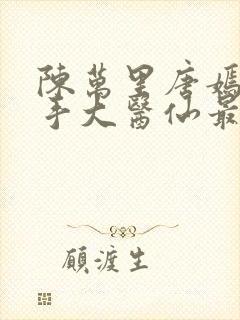 陳萬里唐嫣
手大醫仙最
顧渡生